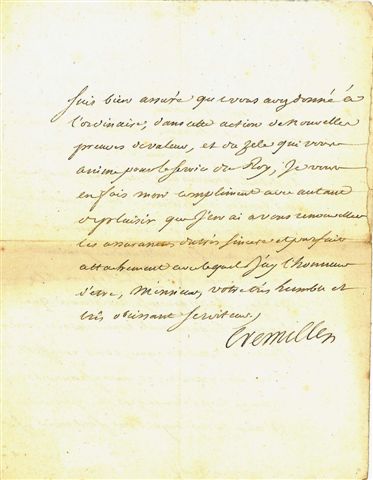 suis bien assuré que vous avez donné à
l'ordinaire, dans cette action de nouvelles
preuves de valeur, et du zele qui vous
anime pour le service du Roy, Je vous
en fais mon compliment avec autant
de plaisir que J'en ai a vous renouveller
les assurances du très sincere et parfait
attachement avec lequel J'ay l'honneur
d'etre, Monsieur, votre très humble et
très obeissant serviteur,